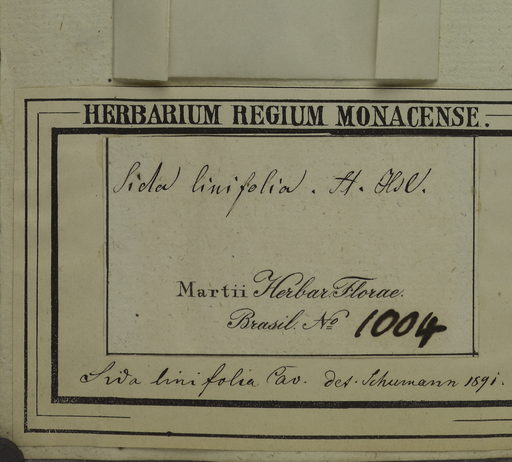 HERBARIUM REGIUM MONACENSE.
Sida linifolia. St. Hil.
Martii Herbar. Florae.
Brasil. No 1004
Sida linifolia Cav. det. Schumann 1891.